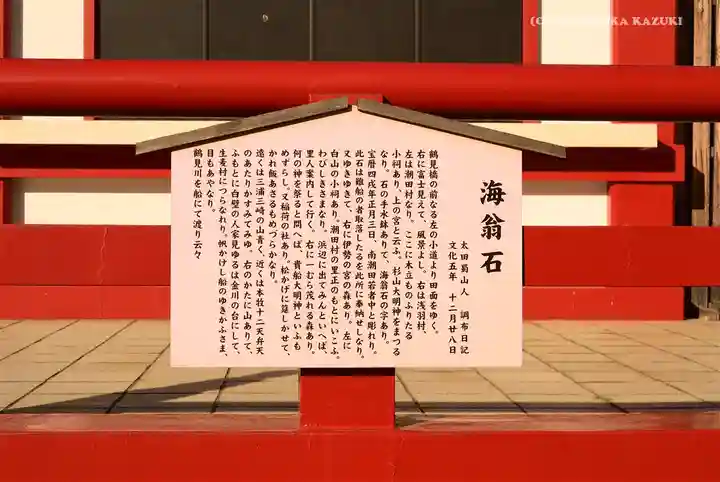 海翁石
太田蜀山人 調布日記
文化五年 十二月廿八日
鶴見橋の前なる左の小道より田面をゆく。
右に富士見えて、風景よし。右は浅羽村、
左は潮田村なり。ここに木立ものふりたる
小祠あり、上の宮と云ふ。杉山大明神をまつる
なり。石の手水鉢ありて、海翁石の字あり。
宝暦四戌年正月三日、南潮田若者中と彫れり。
此石は難船の者取落したるを此所に奉納せしなり。
又ゆきゆきて、右に伊勢の宮の森あり。左に
白山の小祠あり。潮田村の里正のもとにいこふ。
わびしきさまなり。浜辺に出てみんといへば、
里人案内して行く。右に一むら茂れる森あり。
何の神を祭ると問へば、貴船大明神といふも
めずらし。又稲荷の社あり。松かげに莚しかせて、
かれ飯あさるもめづらかなり。
遠くは三浦三崎の山青く、近くは本牧十二天弁天
のあたりかすみてみゆ。右のかたに山ありて、
ふもとに白壁の人家見ゆるは金川の台にして、
生麦村につらなれり。帆かけし船のゆきかふさま、
目もあやなり。
鶴見川を船にて渡り云々
KA KAZUKI